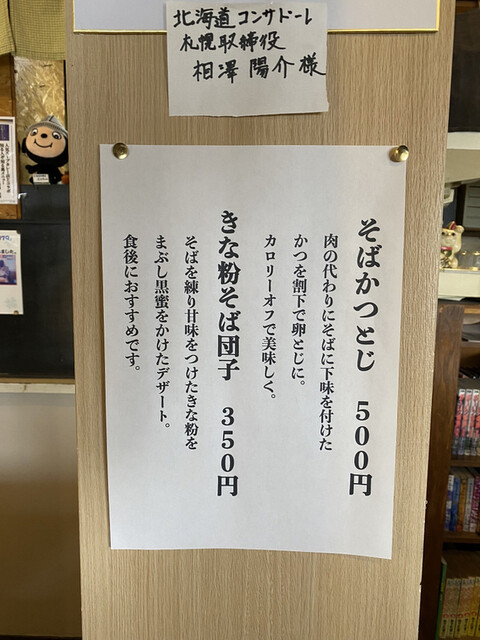 北海道コンサドーレ
札幌取締役
相澤 陽介 様
そばかつとじ 500円
肉の代わりにそばに下味を付けた
かつを割下で卵とじに。
カロリーオフで美味しく。
きな粉そば団子 350円
そばを練り甘味をつけたきな粉を
まぶし黒蜜をかけたデザート。
食後におすすめです。